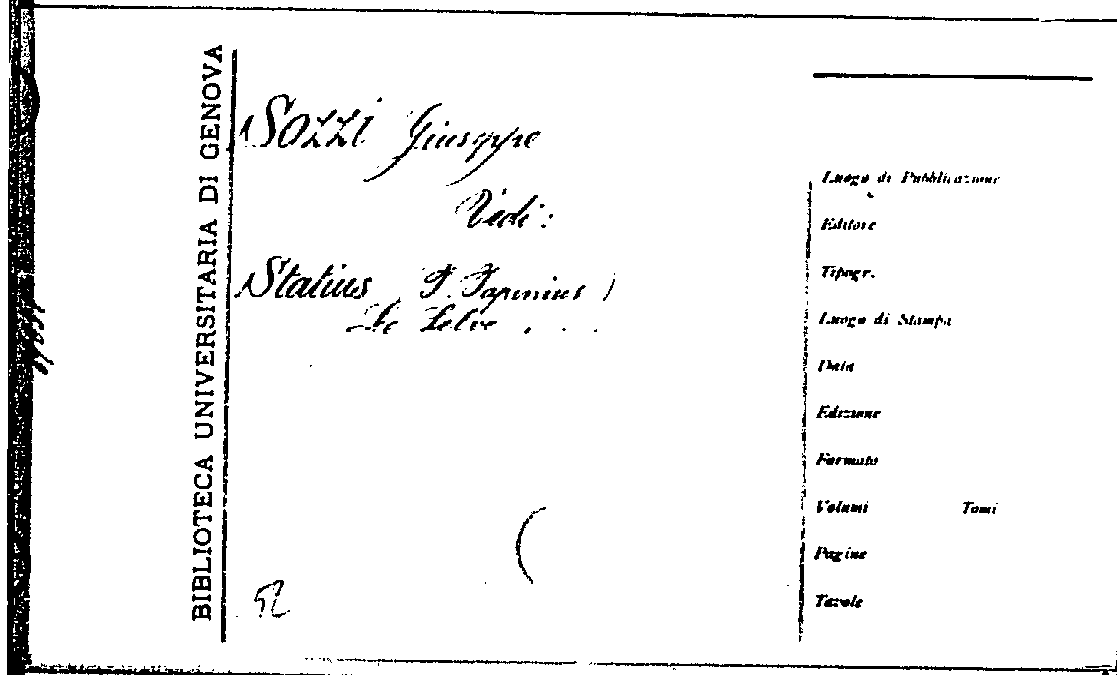 BIBLIOTECA UNIVERSITARIA DI GENOVA
Sozzi Giuseppe
Vedi:
Statius, P. Papinius)
Le Selve . . . .
52
Luogo di Pubblicazione
Editore
Tipogr.
Luogo di Stampa
Data
Edizione
Formato
Volumi Tomi
Pagine
Tavole